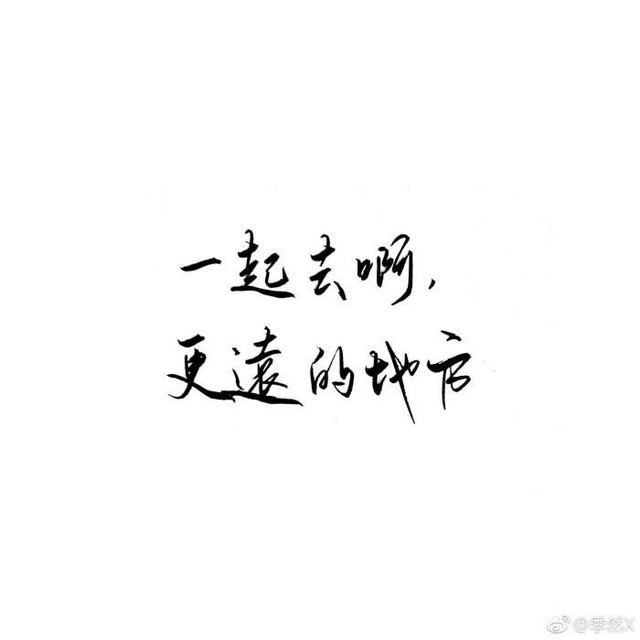 一起去啊，
更遠的地方
@季然X